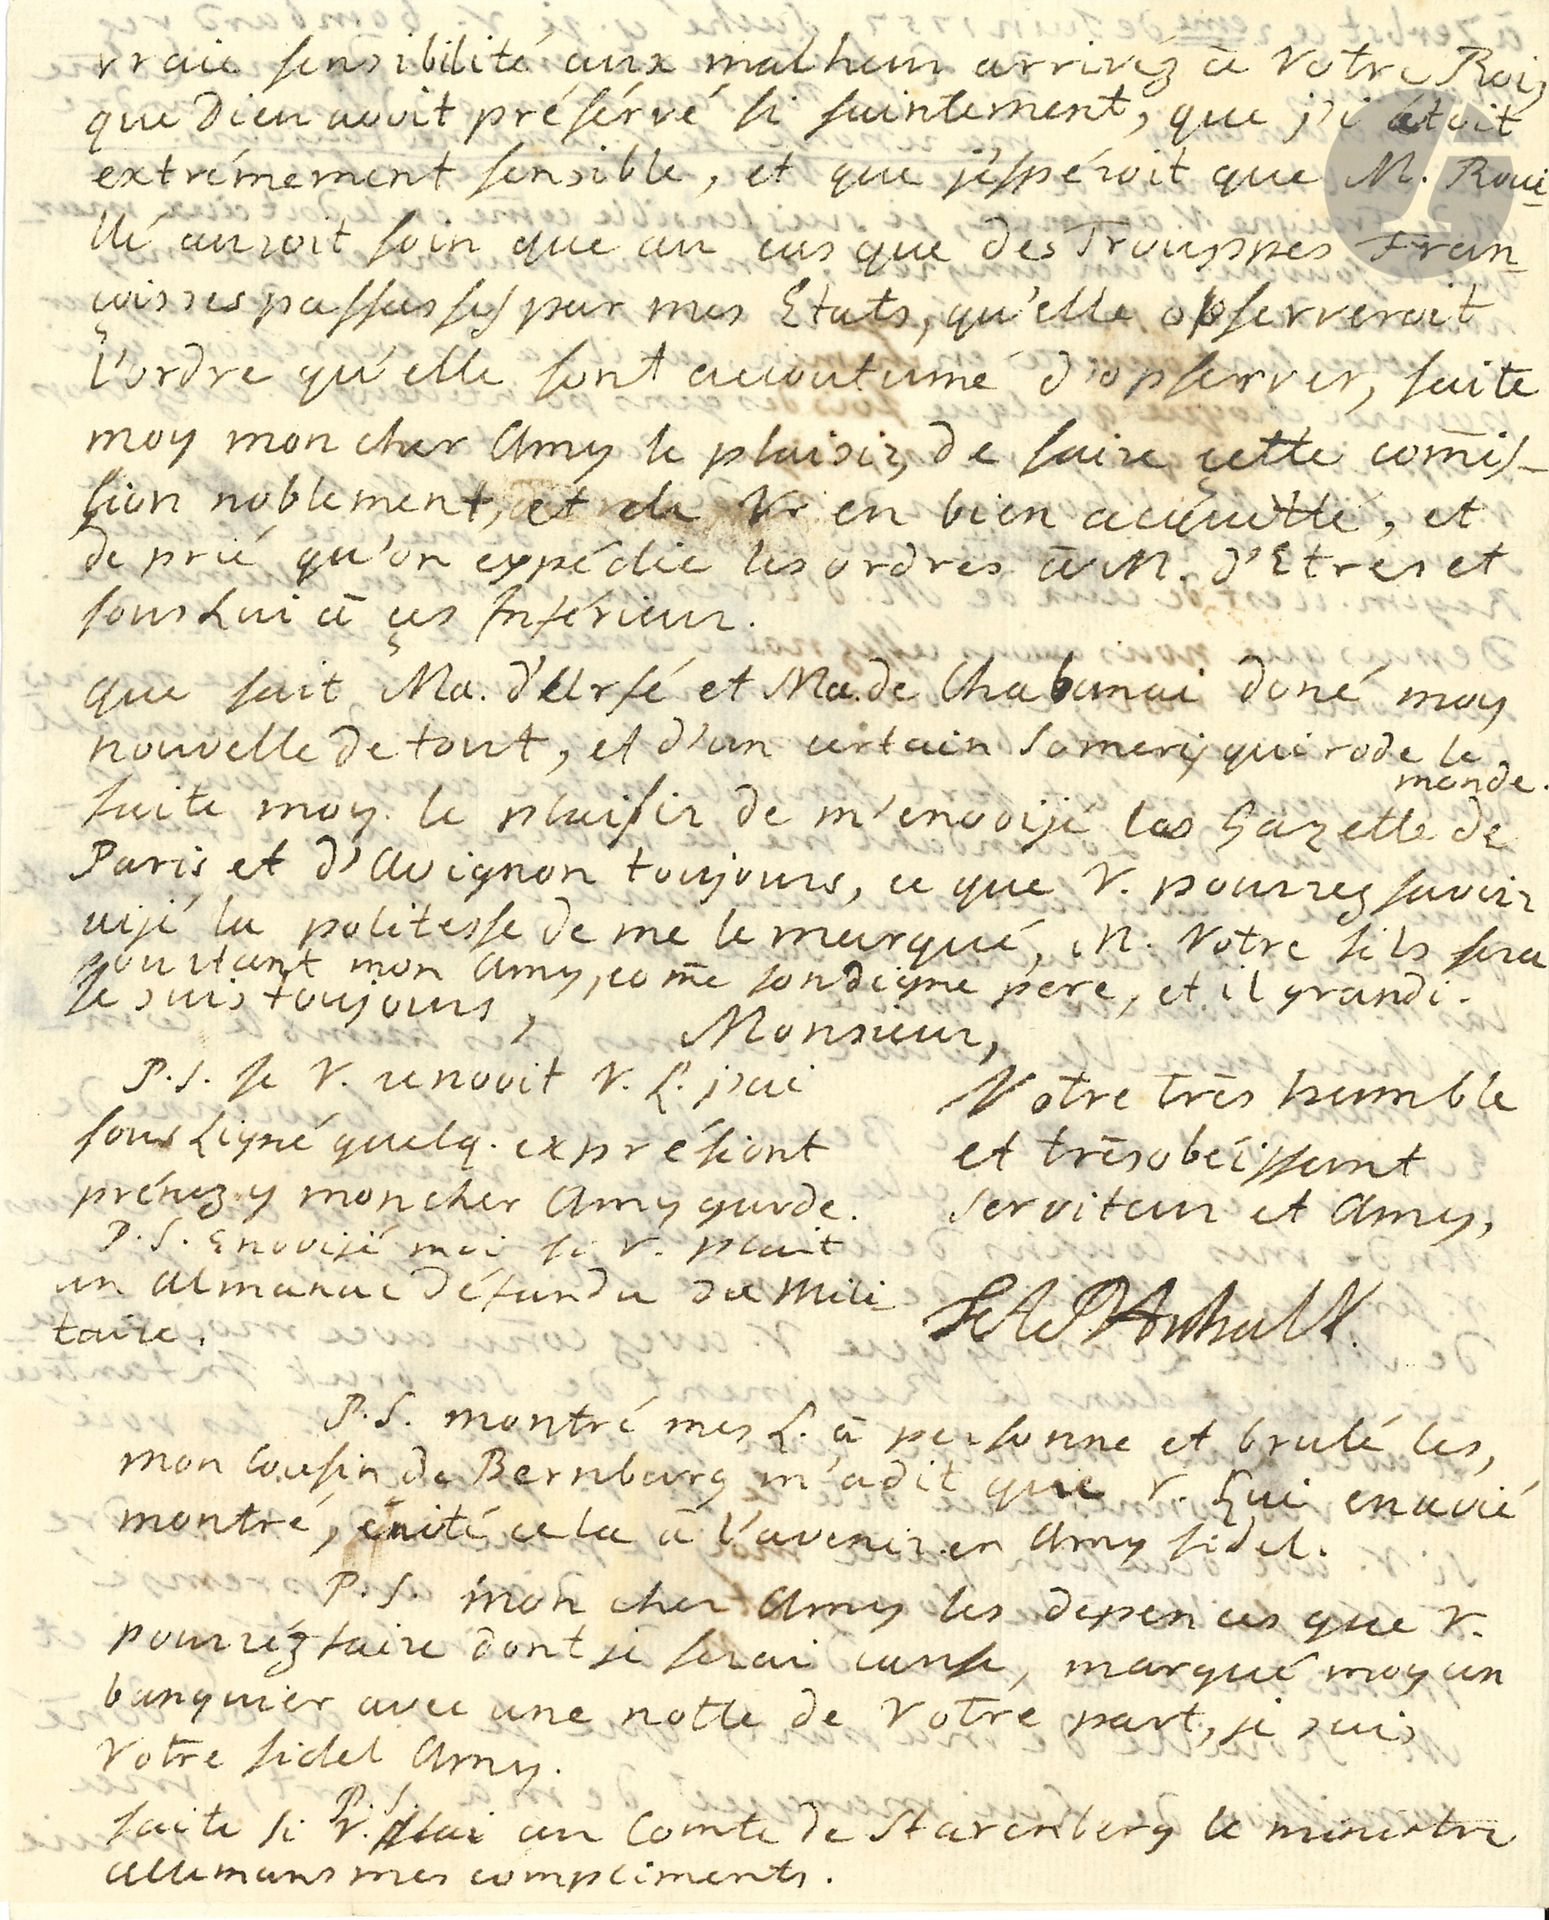 vraie sensibilité aux malheur arrivéz à Votre Roi,
que Dieu avoit préservé si saintement, que j'i étoit
extrémement sensible, et que j'éspéroit que M. Roui
llé auroit soin que au cas que des Trouppes Fran
çoisses passasses par mes Etats, qu'elle opserveroit
l'ordre qu'elle sont acoutumé d'opserver, faite
moy mon cher Amy le plaisir, de faire çette comis-
sion noblement, et de V. en bien acquitté, et
de prié qu'on expédie les ordres à M. d'Etres et
sous Lui à çes Inférieur.
que fait Ma. d'Urfé et Ma. de Chabanai doné moy
nouvelle de tout, et d'un certain Somery qui rode le
monde.
faite moy le plaisir de m'envoijé las Gazette de
Paris et d'Avignon toujours, ce que V. pourrez savoir
aijé la politesse de me le marqué, M. Votre fils sera
pourtant mon Amy, come son digne père, et il grandi.
Je suis toujours, Monsieur,
P.S. Je V. renvoit V. L. j'ai
sous Ligné quelq. expréssiont
prénez y mon cher Amy garde.
Votre très humble
et très obéissant
serviteur et Amy,
P.S. Envoijé moi si V. plait
un Almanac défandu du Mili
taire.
Anhalt.
P.S. montré mes L. à personne et brulé les,
mon Cousin de Bernburg m'a dit que V. Lui en avié
montré, évité cela à l'avenir en Amy fidel.
P.S. mon cher Amy les depences que V.
pourréz faire dont je serai cause, marqué moy un
banquier avec une notte de Votre part, je suis
Votre fidel Amy.
P.S.
faite si V. plai au Comte de Starenberg le ministre
allemans mes compliments.